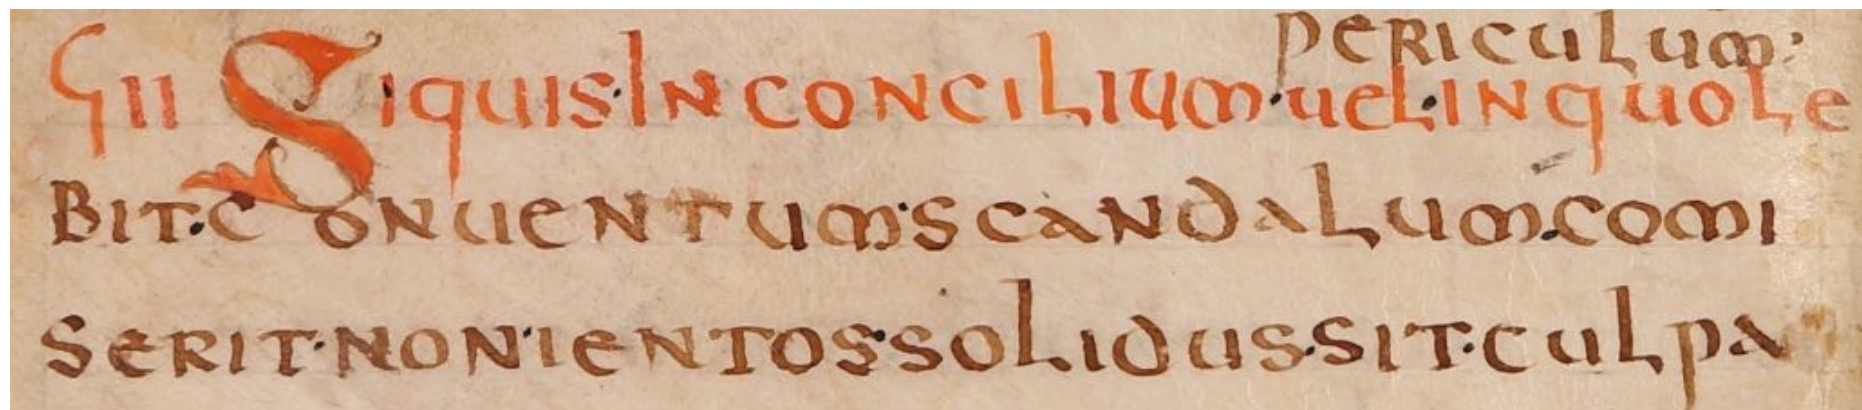 periculum;
ϛii Siquis·in concilium·uel·in quole
bit·conuentum·scandalum·comi
serit·non·ientos·solidus·sit·culpa